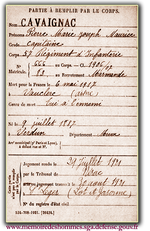 PARTIE À REMPLIR PAR LE CORPS.
Nom CAVAIGNAC
Prénoms Pierre Marie Joseph Maurice
Grade Capitaine
Corps 57 Régiment d'Infanterie
N° 556 au Corps. — Cl. 1906
Matricule. 83 au Recrutement Marmande
Mort pour la France le 6 mai 1917
à Vauclerc (Aisne)
Genre de mort Tué à l'ennemi
Né le 9 juillet 1887
à Verdun Département Meuse
Arr municipal (p Paris et Lyon),
à défaut rue et N°.
Jugement rendu le 21 Juillet 1921
par le Tribunal de
acte ou jugement transcrit le 30 août 1921
à St Léger (Lot & Garonne)
N° du registre d'état civil
www.memoiredeshommes.sga.defense.gouv.fr